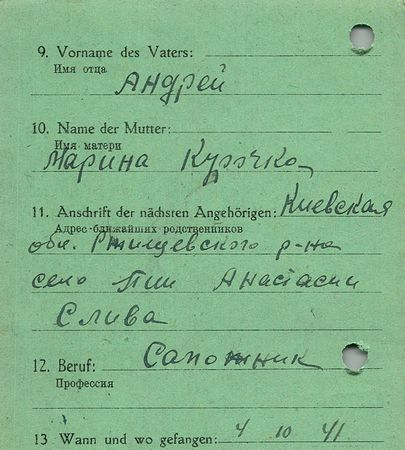 9. Vorname des Vaters:
Имя отца
Андрей
10. Name der Mutter:
Имя матери
Марина Курочко
11. Anschrift der nächsren Angehörigen: Киевская
Адрес ближайших родственников
обл. Ржищевского р-на
село Пии Анастасии
Слива
12. Beruf: Сапожник
Профессия
13 Wann und wo gefangen: 4 10 41